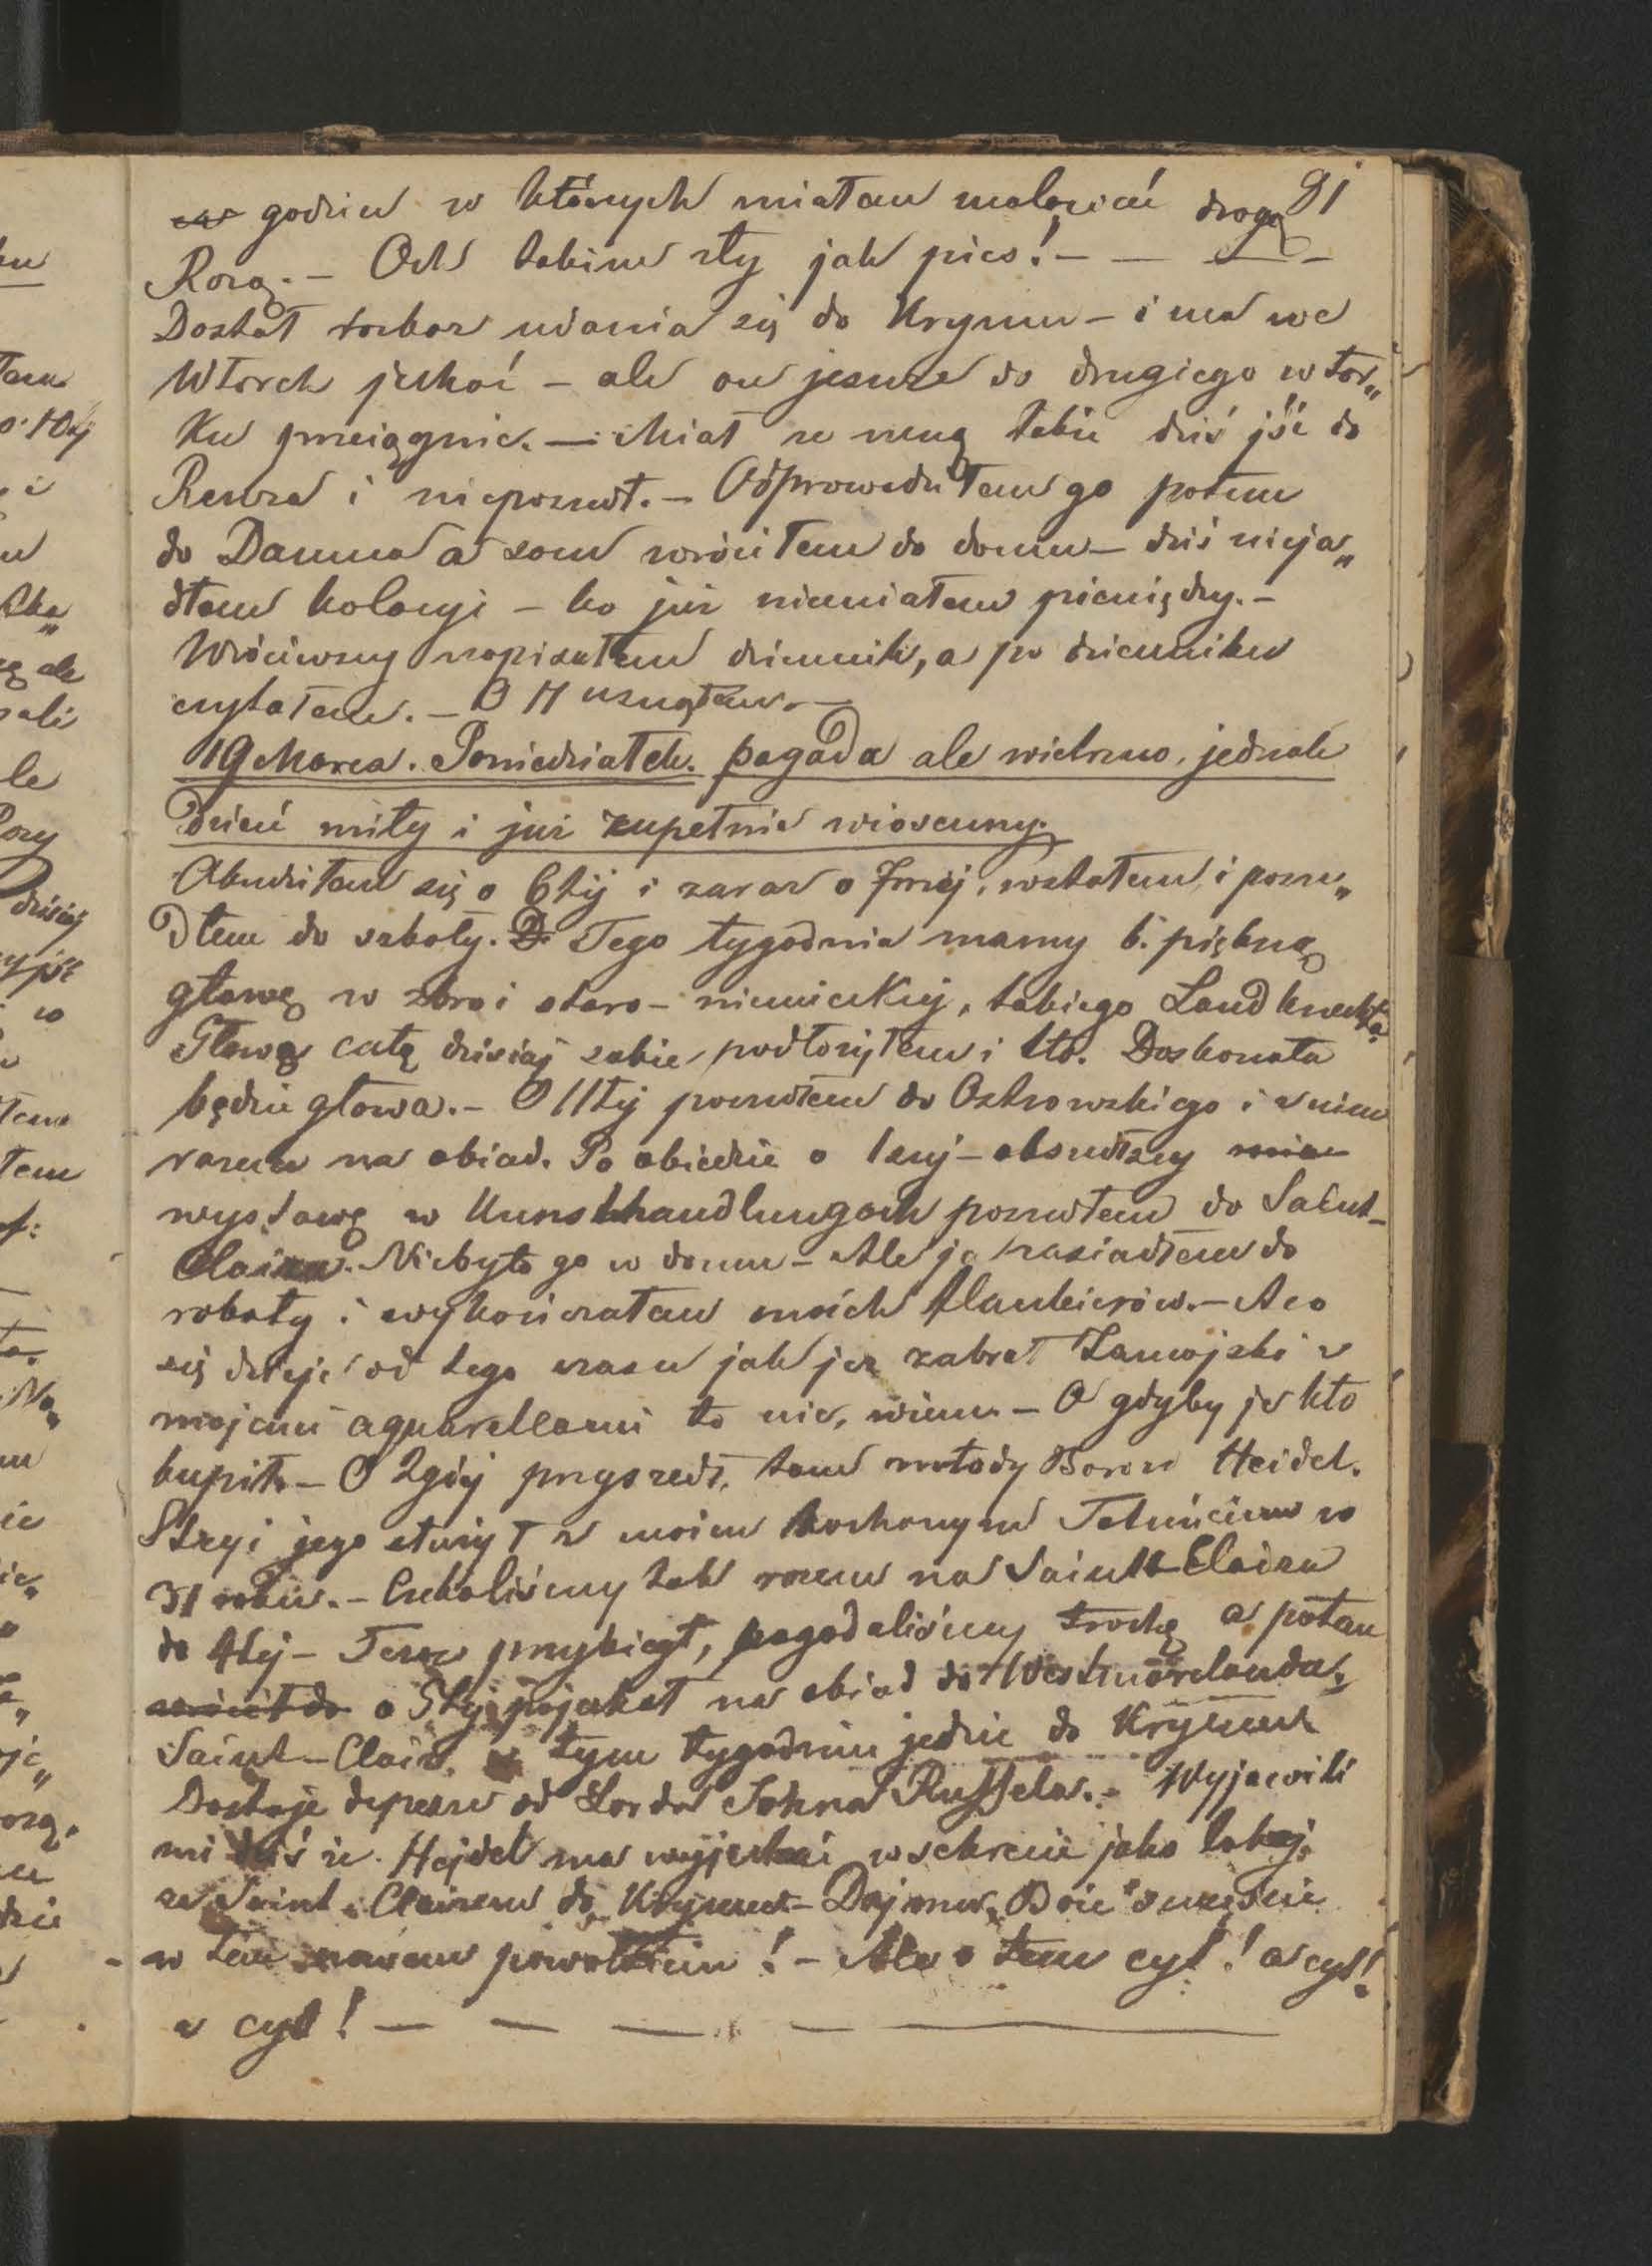 81
godzin w których miałem malować drogą
Rozą. — Och takim zły jak pies! — — —
Dostał rozkaz udania się do Krymu — i ma we
Wtorek jechać — ale on jeszcze do drugiego wtor„
ku przeciągnie. — Miał ze mną także dziś jść do
Resursa i nieposzedł. — Odprowadziłem go potem
do Damma a sam wróciłem do domu — dziś nieja„
dłem kolacyi — bo już niemiałem pieniędzy. —
Wróciwszy napisałem dziennik, a po dzienniku
czytałem. — O 11 usnąłem. —
19 Marca. Poniedziałek. pogoda ale wietrzno, jednak
dzień miły i już zupełnie wiosenny.
Obudziłem się o 6tej i zaraz o 7mej, wstałem, i posze„
dłem do szkoły. Tego tygodnia mamy b. piękną
głowę w zbroi staro-niemieckiej, takiego Landknechta
Głowę całą dzisiaj sobie podłożyłem i tło. Doskonała
będzie głowa. — O 11tej poszedłem do Ostrowskiego i z nim
razem na obiad. Po obiedzie o 1szej — obszedłszy
wystawę w Kunsthandlungach poszedłem do Saint-
Claira. Niebyło go w domu — Ale ja zasiadłem do
roboty i wykończałem moich flankierów. — A co
się dzieje od tego czasu jak je zabrał Zamojski z
mojemi aquarellami to nic, wiem — O gdyby je kto
kupił. — O 2giej przyszedł tam młody Baron Heidel.
Stryj jego służył z moim kochanym Tatuńciem w
31 roku. — Czekaliśmy tak razem na Saint-Claira
do 4tej — Teraz przybiegł, pogadaliśmy trochę a potem
o 5tej pojechał na obiad do Westmorelanda.
Saint-Clair w tym tygodniu jedzie do Krymu
Dostaje depesze od Lorda Johna Russela. — Wyjawili
mi dziś że Hejdel ma wyjechać w sekrecie jako lokaj
ze Saint-Clairem do Krymu — Daj mu Boże szczęście
w tem nowem powołaniu! — Ale o tem cyt! a cyt!
a cyt! — — — — —